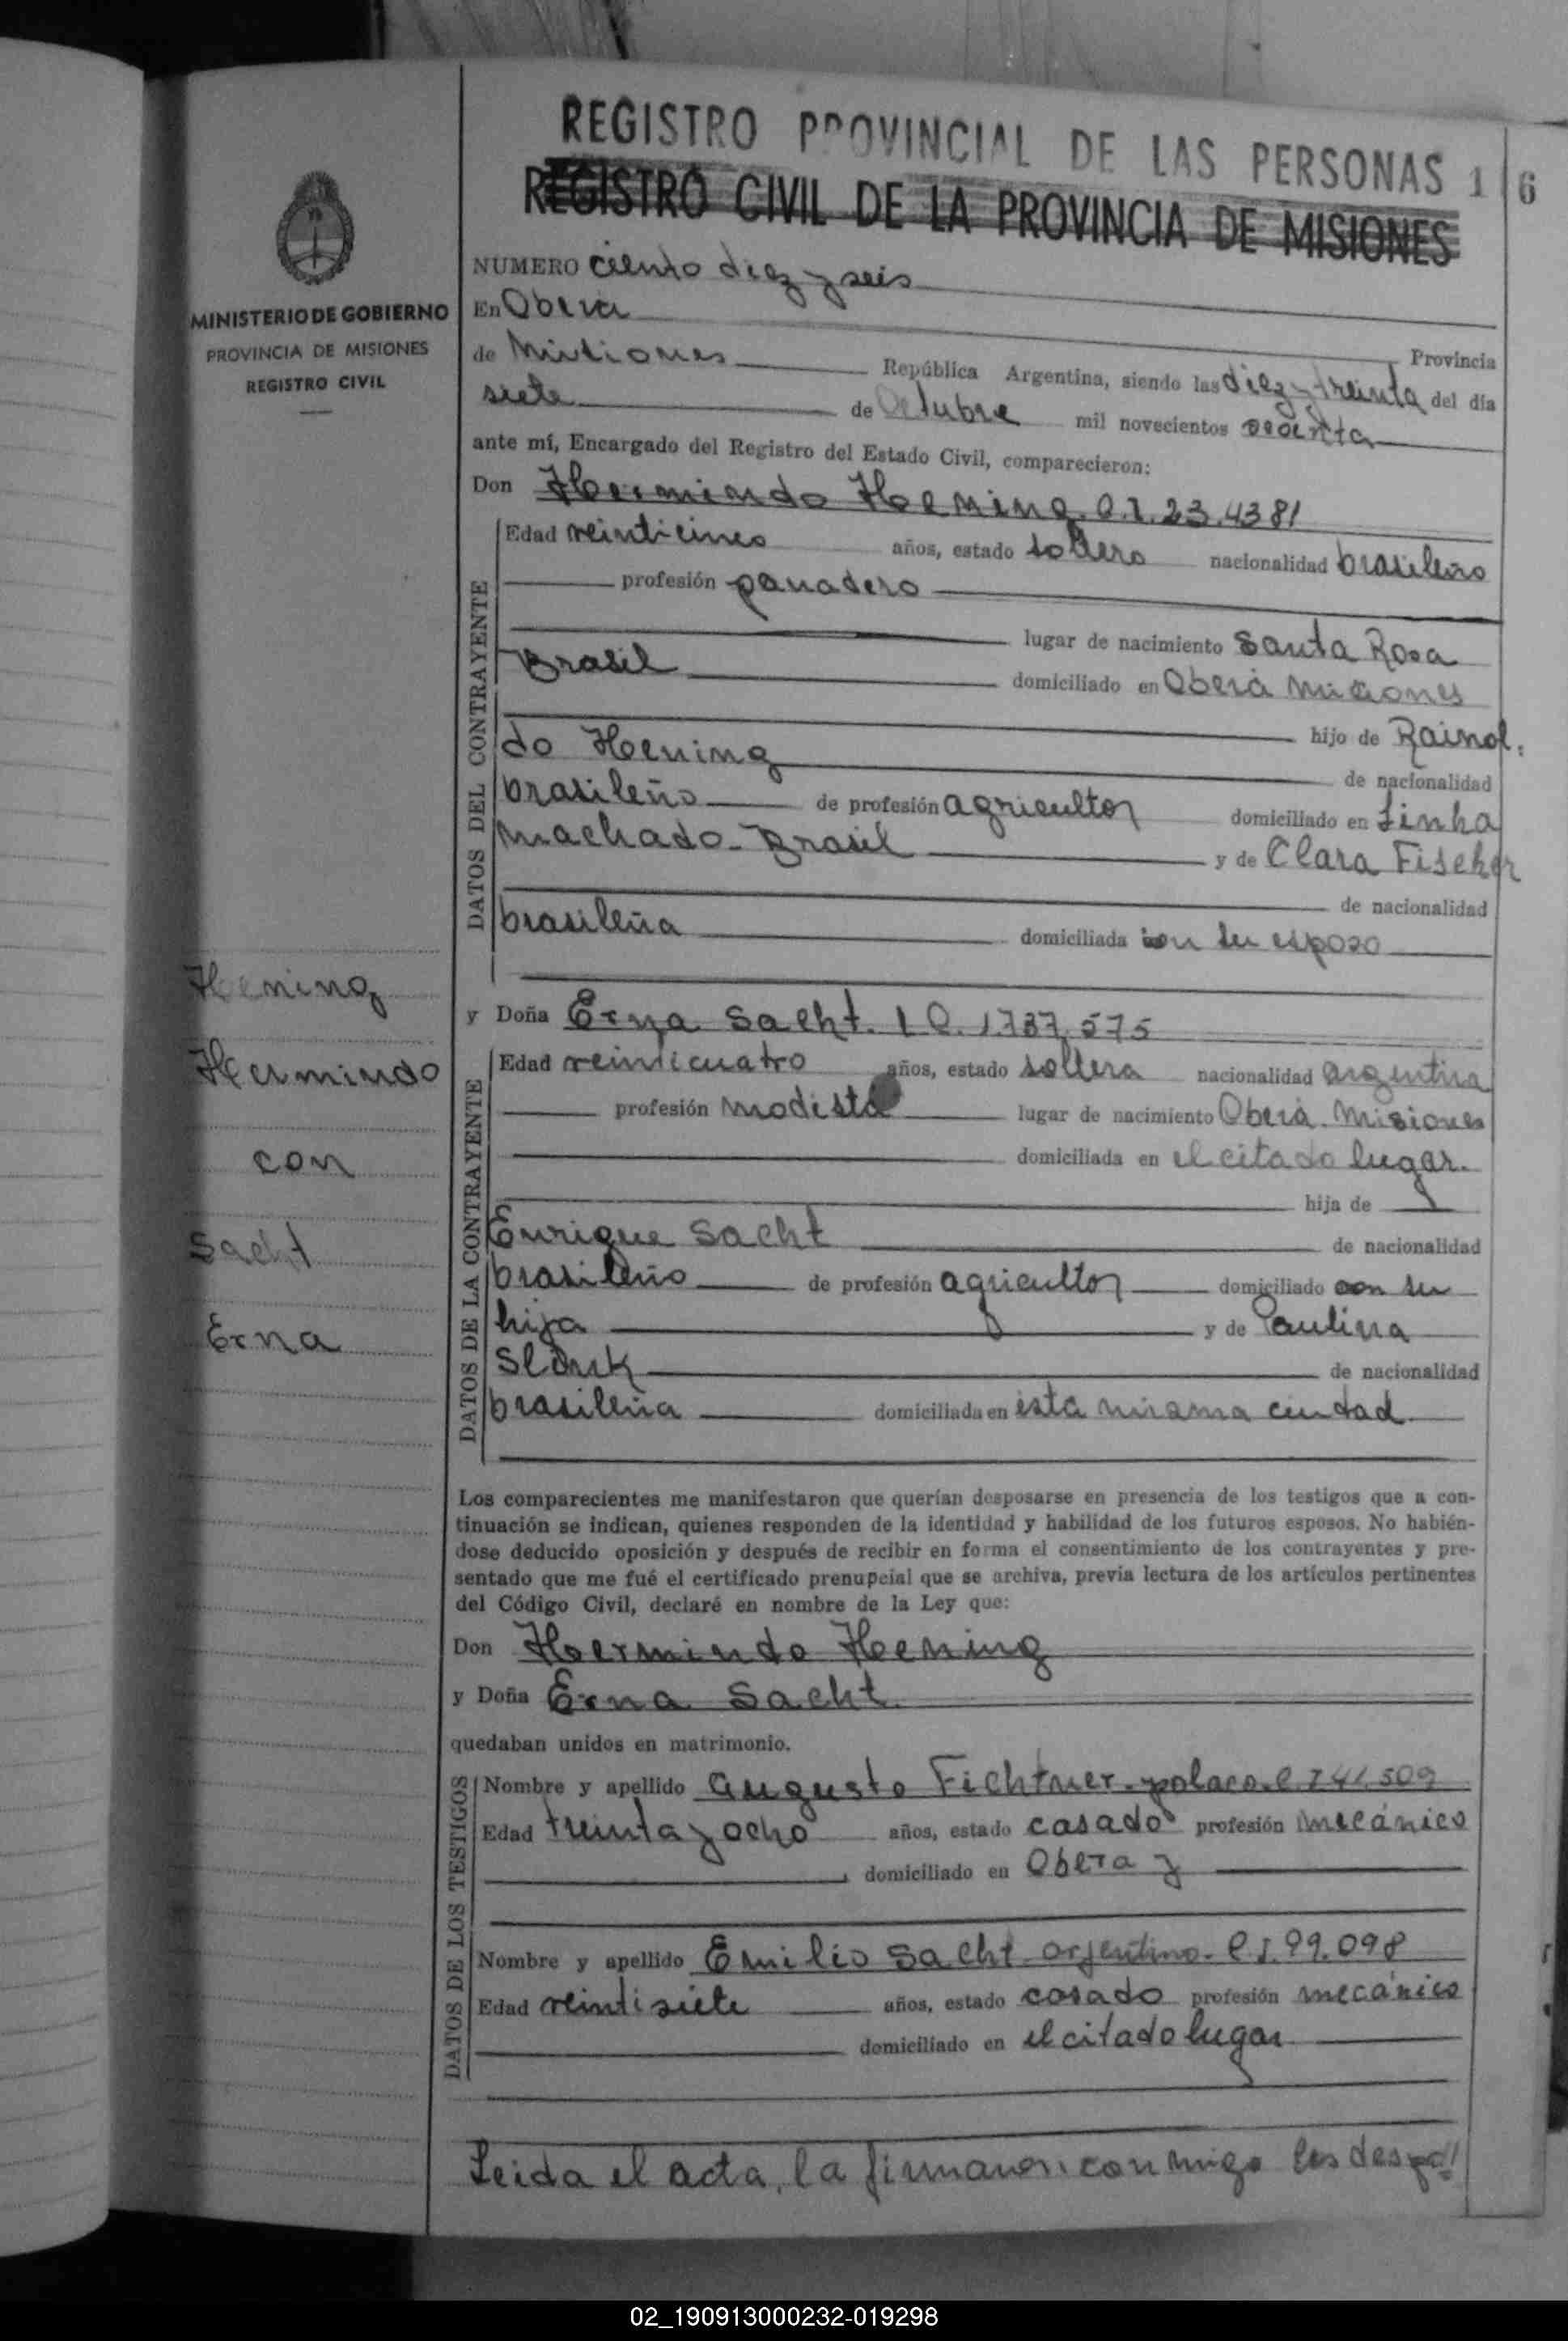 REGISTRO PROVINCIAL DE LAS PERSONAS 1 6
REGISTRO CIVIL DE LA PROVINCIA DE MISIONES
MINISTERIO DE GOBIERNO
PROVINCIA DE MISIONES
REGISTRO CIVIL
NUMERO ciento diez y seis
En Obera
Provincia
de Misiones República Argentina, siendo las diez y treinta del día
siete de Octubre mil novecientos sesenta
ante mí, Encargado del Registro del Estado Civil, comparecieron:
Don Hermindo Hoening. C.I. 23.4381
DATOS DEL CONTRAYENTE
Edad veinticinco años, estado soltero nacionalidad brasileño
profesión panadero
lugar de nacimiento Santa Rosa
Brasil domiciliado en Oberá Misiones
hijo de Rainol
do Hoening de nacionalidad
brasileño de profesión agricultor domiciliado en Linha
Machado - Brasil y de Clara Fischer
de nacionalidad
brasileña domiciliada con su esposo
Hoening
Hermindo
con
Sacht
Erna
y Doña Erna Sacht. L C. 1.737.575
DATOS DE LA CONTRAYENTE
Edad veinticuatro años, estado soltera nacionalidad argentina
profesión modista lugar de nacimiento Oberá. Misiones
domiciliada en el citado lugar.
hija de
Enrique Sacht de nacionalidad
brasileño de profesión agricultor domiciliado con su
hija y de Paulina
de nacionalidad
brasileña domiciliada en esta misma ciudad
Los comparecientes me manifestaron que querían desposarse en presencia de los testigos que a con-
tinuación se indican, quienes responden de la identidad y habilidad de los futuros esposos. No habién-
dose deducido oposición y después de recibir en forma el consentimiento de los contrayentes y pre-
sentado que me fué el certificado prenupcial que se archiva, previa lectura de los artículos pertinentes
del Código Civil, declaré en nombre de la Ley que:
Don Hermindo Hoening
y Doña Erna Sacht
quedaban unidos en matrimonio.
DATOS DE LOS TESTIGOS
Nombre y apellido Augusto Fichtner - polaco. C I 41.509
Edad treinta y ocho años, estado casado profesión mecánico
domiciliado en Obera y
Nombre y apellido Emilio Sacht argentino - C I. 99.098
Edad veintisiete años, estado casado profesión mecánico
domiciliado en el citado lugar
Leida el acta, la firmaron conmigo los despo//
02_190913000232-019298